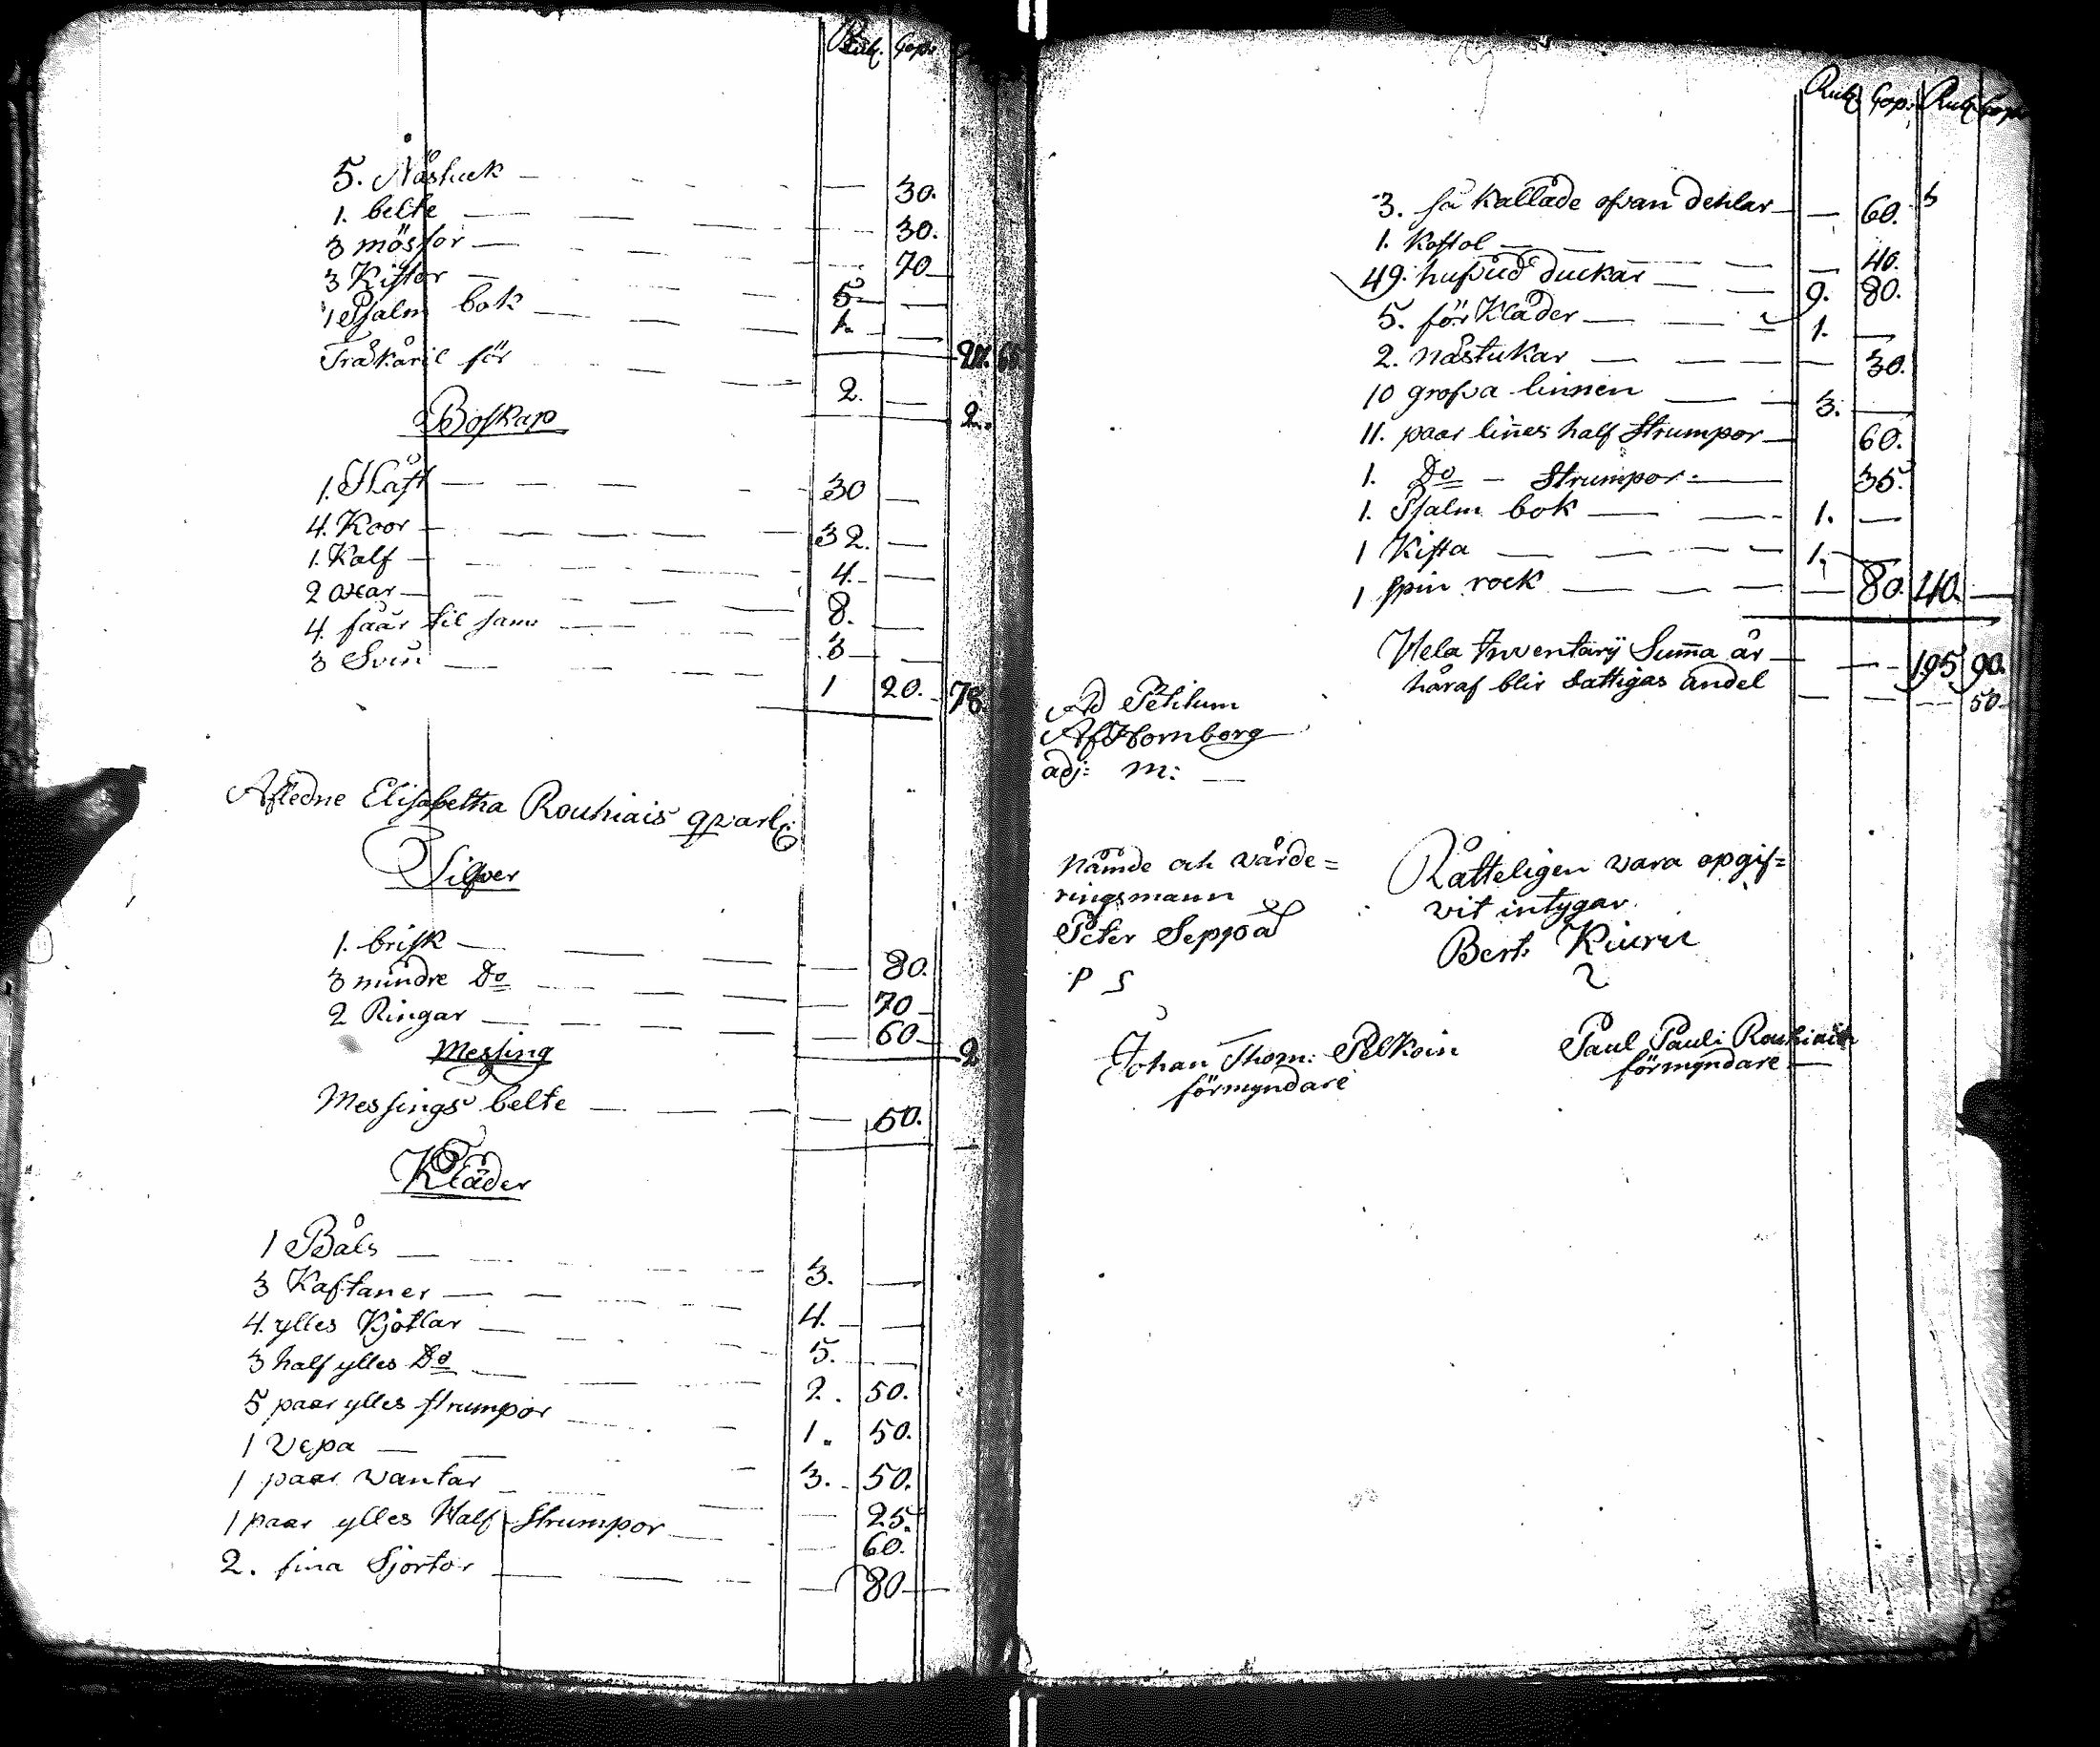 Rub. Cop.
5. Nåstuck — — 30.
1. belte — — 30.
3 mössor — — 70
3 Kistor — 5 —
1 Psalm bok — 1. —
Tråkäril för — 2. — 2.
Boskap
1. Häst — 30 —
4. Koor — 32. —
1. Kalf — 4. —
2 oxar — 8. —
4. fäår til sam — 3 —
3 Svin — 1 20. 78.
Afledne Elisabetha Rouhiais qvarl:
Silfver
1. brisk — — 80.
3 mindre Do — — 70
2 Ringar — — 60 2
Messing
Messings belte — — 50.
Kläder
1 Päls — 3. —
3 Kaftaner — 4. —
4. ylles Kjötlar — 5. —
3 half ylles Do — 2. 50.
5 paar ylles strumpor — 1. 50.
1 Vepa — 3. 50.
1 paar vantar — — 25.
1 paar ylles Half Strumpor — — 60.
2. fina Sjortor — — 80
Rub. Cop. Rub. Cop.
3. så kallade ofvan dehlar — — 60.
1. Koftol — — 40.
49. hufvud duckar — 9. 80.
5. förKläder — 1. —
2. nästukar — — 30.
10 grofva linnen — 3. —
11. paar linnes half Strumpor — 60.
1. Do — Strumpor — 35.
1. Psalm bok — 1. —
1 Kista — 1. —
1 spin rock — — 80. 40. —
Hela Inventarij Summa är — 195 90.
häraf blir fattigas andel — 50.
Ad Petitum
Af Hornborg
adj: m: —
Nämde och värde=
ringsmann
Peter Seppoä
P S
Rätteligen vara opgif=
vit intygar
Bert. Kiuru
Johan Thom: Pelkoin
förmyndare
Paul Pauli Rouhiain
förmyndare —